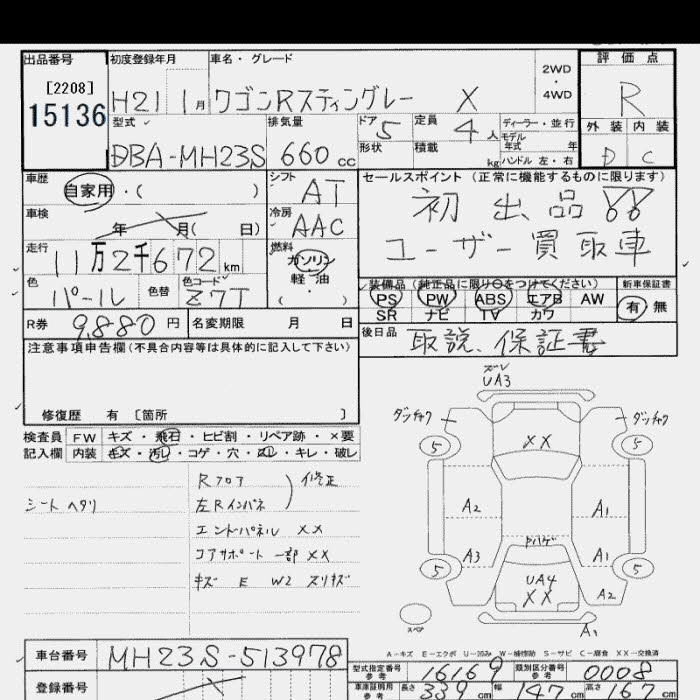 出品番号
[2208]
15136
初度登録年月
H21 1月
車名・グレード
ワゴンRスティングレー X
2WD
・
4WD
評価点
R
外装 内装
D C
型式
DBA-MH23S
排気量
660cc
ドア 5
形状
定員 4人
積載 kg
ディーラー・並行
モデル
年式 年
ハンドル 左・右
車歴
自家用・( )
車検
年 月( 日)
走行
11万2千672km
色 パール 色替
色コード Z7T
シフト
AT
冷房
AAC
燃料
ガソリン
軽油
( )
セールスポイント(正常に機能するものに限ります)
初出品!!
ユーザー買取車
装備品(純正品に限り○をつけてください)
PS PW ABS エアB AW
SR ナビ TV カワ
新車保証書
有 無
R券 9,880円 名変期限 月 日
後日品 取説、保証書
注意事項申告欄(不具合内容等は具体的に記入して下さい)
修復歴 有 〔箇所 〕
検査員 FW キズ・飛石・ヒビ割・リペア跡・×要
記入欄 内装 キズ・汚レ・コゲ・穴・スレ・キレ・破レ
シートヘタリ
Rフロア
左Rインパネ
) 修正
エンドパネル XX
コアサポート一部XX
キズ E W2 スリキズ
ズレ
UA3
ダッチャク
ダッチャク
5
XX
5
A2
A1
A3
Pハゲ
A1
5
UA4
XX
5
A2
スペア
A1
A-キズ E-エクボ U-凹み W-補修跡 S-サビ C-腐食 XX-交換済
車台番号 MH23S-513978
登録番号
型式指定番号
参考
16169
類別区分番号
参考
0008
車庫証明用
参考
長さ 339cm 幅 147cm 高さ 167cm